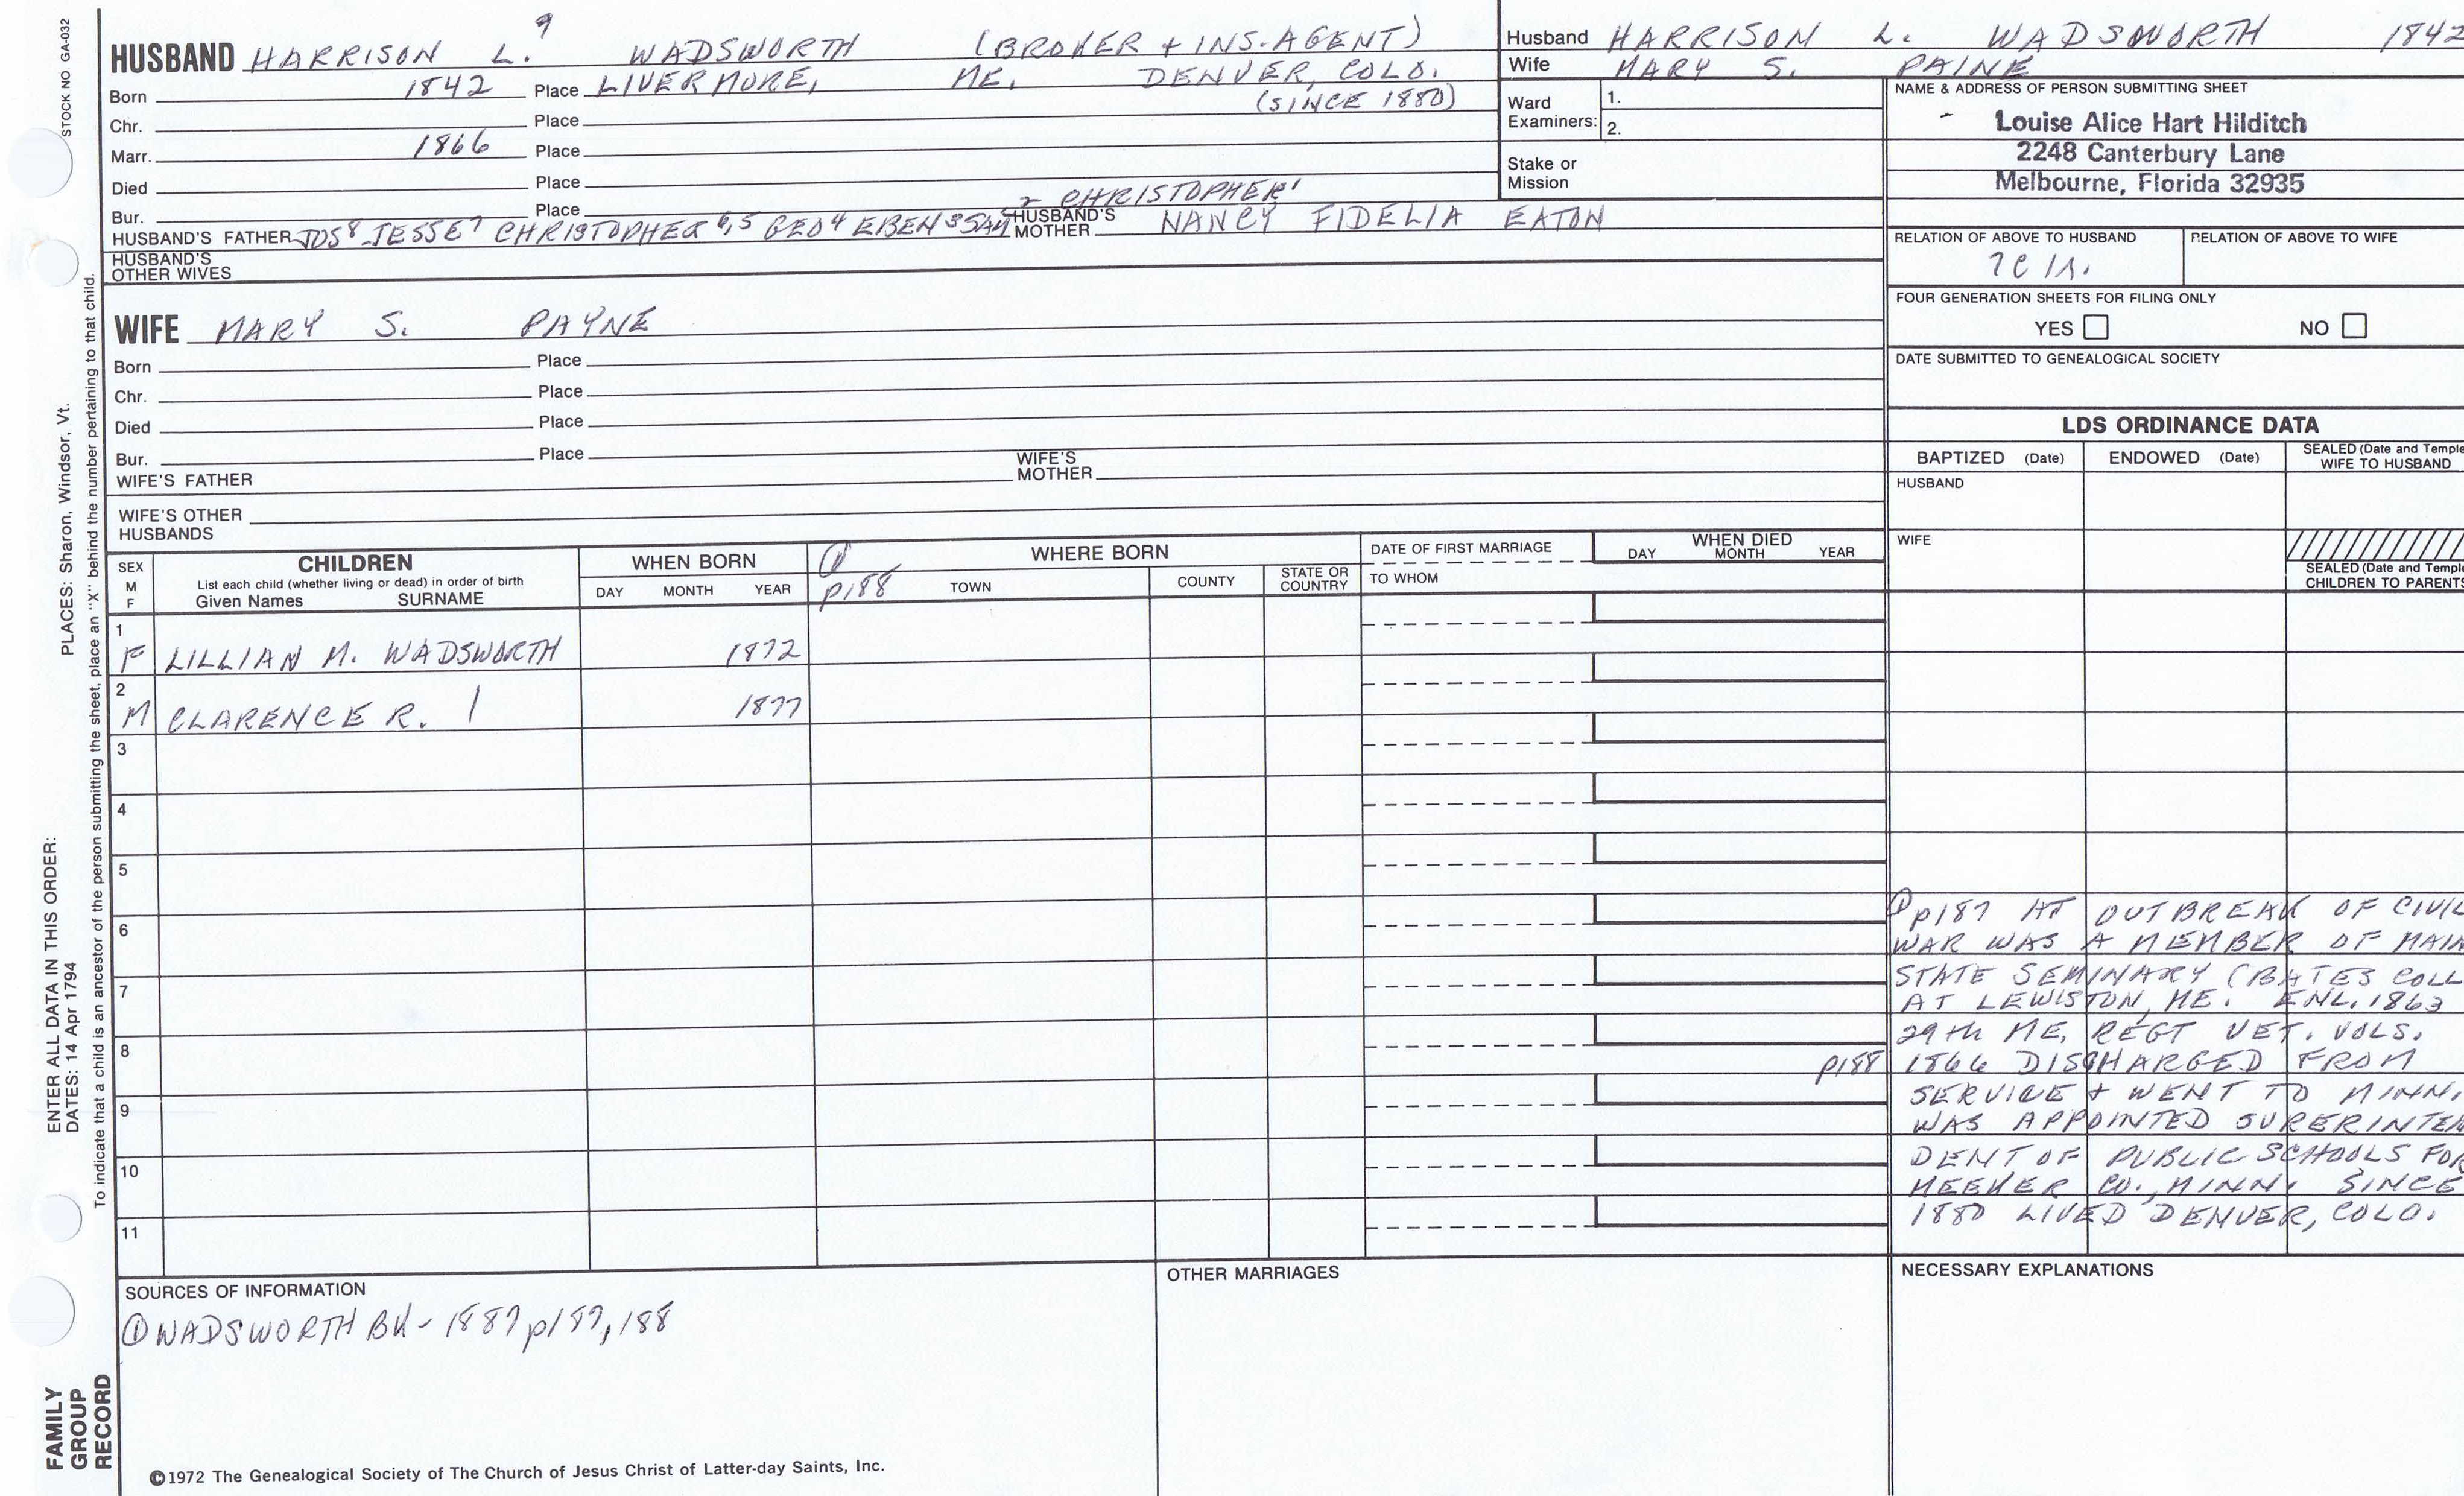 STOCK NO GA-032
HUSBAND HARRISON L.9 WADSWORTH (BROKER + INS. AGENT)
Born 1842 Place LIVERMORE, ME. DENVER, COLO.
(SINCE 1880)
Chr. Place
Marr. 1866 Place
Died Place
Bur. Place
2 CHRISTOPHER1
HUSBAND'S FATHER JOS8 JESSE7 CHRISTOPHER6,5 GEO4 EBEN3 SAM HUSBAND'S MOTHER NANCY FIDELIA EATON
HUSBAND'S OTHER WIVES
Husband HARRISON L. WADSWORTH 1842
Wife MARY S. PAINE
Ward Examiners: 1.
2.
Stake or Mission
NAME & ADDRESS OF PERSON SUBMITTING SHEET
Louise Alice Hart Hilditch
2248 Canterbury Lane
Melbourne, Florida 32935
RELATION OF ABOVE TO HUSBAND RELATION OF ABOVE TO WIFE
7C
FOUR GENERATION SHEETS FOR FILING ONLY
YES NO
DATE SUBMITTED TO GENEALOGICAL SOCIETY
WIFE MARY S. PAYNE
Born Place
Chr. Place
Died Place
Bur. Place
WIFE'S FATHER WIFE'S MOTHER
WIFE'S OTHER HUSBANDS
LDS ORDINANCE DATA
BAPTIZED (Date) ENDOWED (Date) SEALED (Date and Temple
WIFE TO HUSBAND
HUSBAND
WIFE
SEALED (Date and Temple
CHILDREN TO PARENTS
SEX M F
CHILDREN
List each child (whether living or dead) in order of birth
Given Names SURNAME
WHEN BORN
DAY MONTH YEAR
① p188
WHERE BORN
TOWN COUNTY STATE OR COUNTRY
DATE OF FIRST MARRIAGE
TO WHOM
WHEN DIED
DAY MONTH YEAR
1
F LILLIAN M. WADSWORTH 1872
2
M CLARENCE R. | 1877
3
4
5
6
7
8
9
10
11
① p187 AT OUTBREAK OF CIVIL
WAR WAS A MEMBER OF MAIN
STATE SEMINARY (BATES COLL
AT LEWISTON, ME. ENL. 1863
29th ME. REGT VET. VOLS.
p188 1866 DISCHARGED FROM
SERVICE + WENT TO MINN.
WAS APPOINTED SURERINTEN
DENT OF PUBLIC SCHOOLS FOR
MEEKER CO., MINN. SINCE
1880 LIVED DENVER, COLO.
SOURCES OF INFORMATION
① WADSWORTH BK - 1887 p187, 188
OTHER MARRIAGES
NECESSARY EXPLANATIONS
©1972 The Genealogical Society of The Church of Jesus Christ of Latter-day Saints, Inc.
FAMILY
GROUP
RECORD
ENTER ALL DATA IN THIS ORDER:
DATES: 14 Apr 1794
PLACES: Sharon, Windsor, Vt.
To indicate that a child is an ancestor of the person submitting the sheet, place an "X" behind the number pertaining to that child.